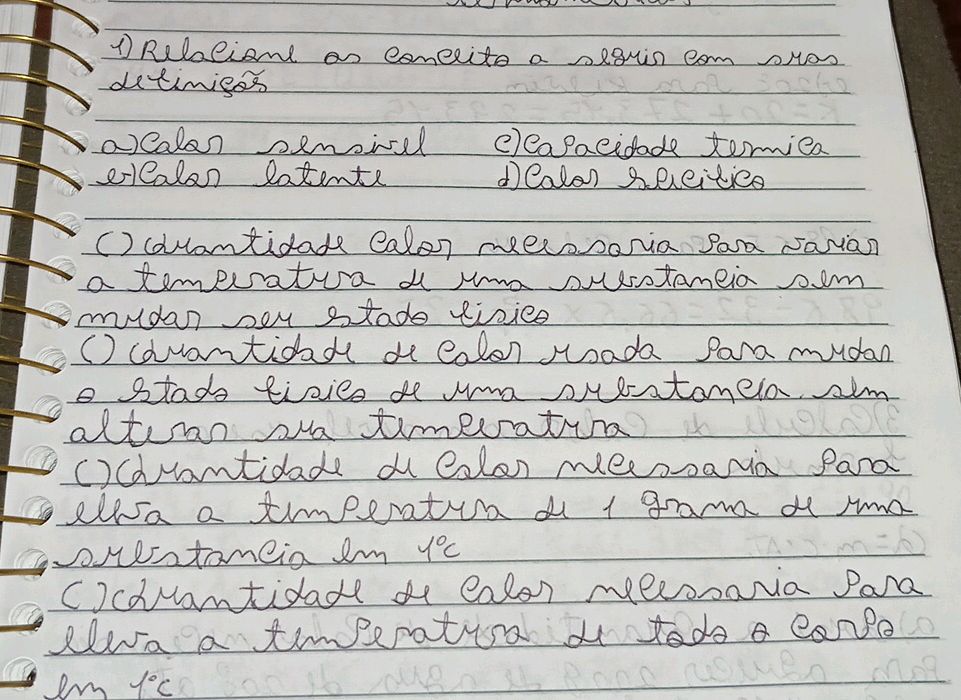 1) Relacione os conceito a seguir com suas
definição
a) Calor sensivel c) Capacidade termica
b) Calor latente d) Calor especifico
( ) Quantidade Calor necessaria Para variar
a temperatura de uma substancia sem
mudar seu estado fisico
( ) Quantidade de Calor usada Para mudar
o estado fisico de uma substancia sem
alterar sua temperatura
( ) Quantidade de Calor necessaria Para
eleva a temperatura de 1 grama de uma
substancia em 1°c
( ) Quantidade de calor necessaria Para
eleva a temperatura de todo o corpo
em 1°c